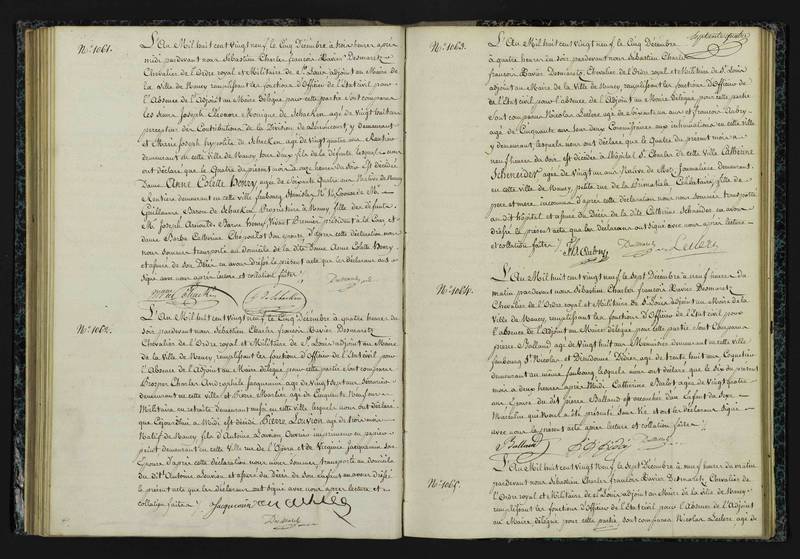 N.º 1061.
L'An Mil huit cent vingt neuf le Cinq Décembre à trois heures après
midi pardevant nous Sébastien Charles françois Xavier Desmarets
Chevalier de l'Ordre royal et Militaire de S.t Louis adjoint au Maire de
la Ville de Nancy remplissant les fonctions d'Officier de l'Etat civil pour
l'Absence de l'Adjoint au Maire délégué pour cette partie sont comparus
les sieurs Joseph Monique de agé de vingt huit ans
percepteur des Contributions de la Division de y demeurant
et Marie Joseph hypolite de agé de vingt quatre ans Rentier
demeurant en cette ville de Nancy tous deux fils de la défunte lesquels nous
ont déclaré que le Quatre du présent mois à onze heures du soir est décédée
Dame Anne Colette Henry agée de Soixante Quatre ans Native de Nancy
Rentière demeurant en cette ville faubourg N.º Epouse de M.r
Guillaume Baron de Propriétaire à Nancy fille des défunts
M.r Joseph Baron Henry Premier président à la Cour et
dame Barbe Catherine son épouse d'après cette déclaration nous
nous sommes transportés au domicile de la dite Dame Anne Colette Henry
et assuré de son Décès en avons dressé le présent acte que les déclarans ont
signé avec nous après lecture et collation faites
Desmarets
N.º 1062.
L'An Mil huit cent vingt neuf le Cinq Décembre à quatre heures du
soir pardevant nous Sébastien Charles françois Xavier Desmarets
Chevalier de l'Ordre royal et Militaire de S.t Louis adjoint au Maire
de la Ville de Nancy remplissant les fonctions d'Officier de l'Etat civil pour
l'Absence de l'Adjoint au Maire délégué pour cette partie sont comparus
Prosper Charles Jacquemin agé de vingt sept ans
demeurant en cette ville et Pierre Martin agé de Cinquante Neuf ans
Militaire en retraite demeurant aussi en cette ville lesquels nous ont déclaré
que Cejourd'hui à Midi est décédé Pierre Louvion agé de trois mois
Natif de Nancy fils d'Antoine Louvion Ouvrier imprimeur en papier
peint demeurant en cette Ville rue de l'Opéra et de Virginie Jacquemin son
Epouse d'après cette déclaration nous nous sommes transportés au domicile
du dit Antoine Louvion et assuré du décès de son enfant en avons dressé
le présent acte que les déclarans ont signé avec nous après lecture et
collation faites
Jacquemin
Desmarets
N.º 1063.
L'An Mil huit cent vingt neuf le Cinq Décembre
à quatre heures du soir pardevant nous Sébastien Charles
françois Xavier Desmarets, Chevalier de l'Ordre royal et Militaire de S.t Louis
adjoint au Maire de la Ville de Nancy remplissant les fonctions d'Officier de
l'Etat civil pour l'absence de l'Adjoint au Maire délégué pour cette partie
Sont comparus Nicolas Leclerc agé de Soixante un ans et françois Aubry
agé de Cinquante un ans tous deux Commissaires aux inhumations en cette ville
y demeurant lesquels nous ont déclaré que le Quatre du présent mois à
neuf heures du soir est décédée à l'hôpital S.t Charles de cette Ville Catherine
Schneider agée de Vingt un ans Native de Metz Journalière demeurant
en cette ville de Nancy, petite rue de la Célibataire, fille de
père et mère inconnus d'après cette déclaration nous nous sommes transportés
au dit hôpital et assuré du Décès de la dite Catherine Schneider en avons
dressé le présent acte que les déclarans ont signé avec nous après lecture
et collation faites
Aubry
Desmarets
Leclerc
N.º 1064.
L'An Mil huit cent vingt neuf le Sept Décembre à neuf heures du
matin pardevant nous Sébastien Charles françois Xavier Desmarets
Chevalier de l'Ordre royal et Militaire de S.t Louis adjoint au Maire de la
Ville de Nancy, remplissant les fonctions d'Officier de l'Etat civil pour
l'absence de l'Adjoint au Maire délégué pour cette partie sont Comparus
pierre Balland agé de vingt huit ans Menuisier demeurant en cette ville
faubourg S.t Nicolas et Dieudonné Didier agé de trente huit ans Coquetier
demeurant au même faubourg lesquels nous ont déclaré que le Six du présent
mois à deux heures après Midi Catherine agée de Vingt quatre
ans Epouse du dit pierre Balland est accouchée d'un Enfant du Sexe
Masculin qui nous a été présenté sans Vie et ont les déclarans signé
avec nous le présent acte après lecture et collation faites
Balland
Desmarets
N.º 1065.
L'An Mil huit cent vingt neuf le Sept Décembre à neuf heures du matin
pardevant nous Sébastien Charles françois Xavier Desmarets Chevalier de
l'Ordre royal et Militaire de S.t Louis adjoint au Maire de la Ville de Nancy
remplissant les fonctions d'Officier de l'Etat civil pour l'Absence de l'Adjoint
au Maire délégué pour cette partie, sont comparus Nicolas Leclerc agé de